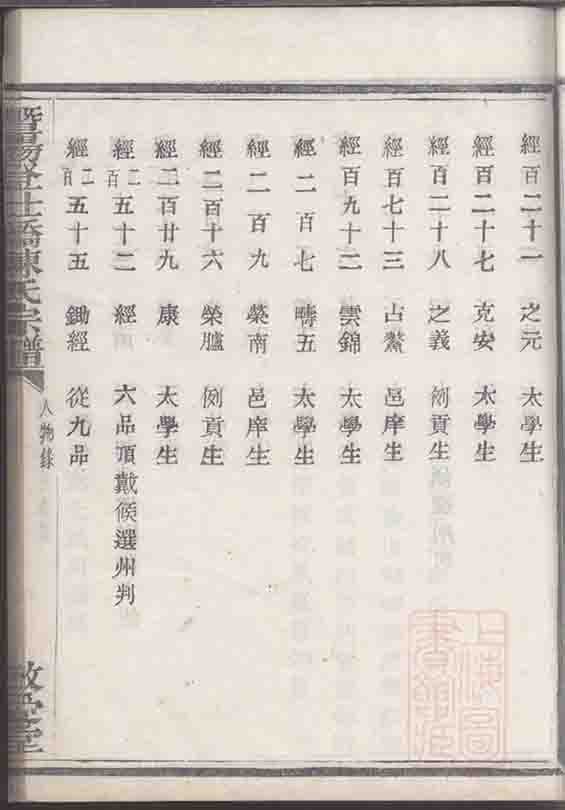 經百二十一 之元 太學生
經百二十七 克安 太學生
經百二十八 之義 例貢生
經百七十三 占鰲 邑庠生
經百九十二 雲錦 太學生
經二百七 疇五 太學生
經二百九 榮南 邑庠生
經二百十六 榮臚 例貢生
經二百廿九 康 太學生
經二百五十二 經 六品頂戴候選州判
經二百五十五 鋤經 從九品
暨陽 橋陳氏宗譜
人物錄
上海圖書館藏